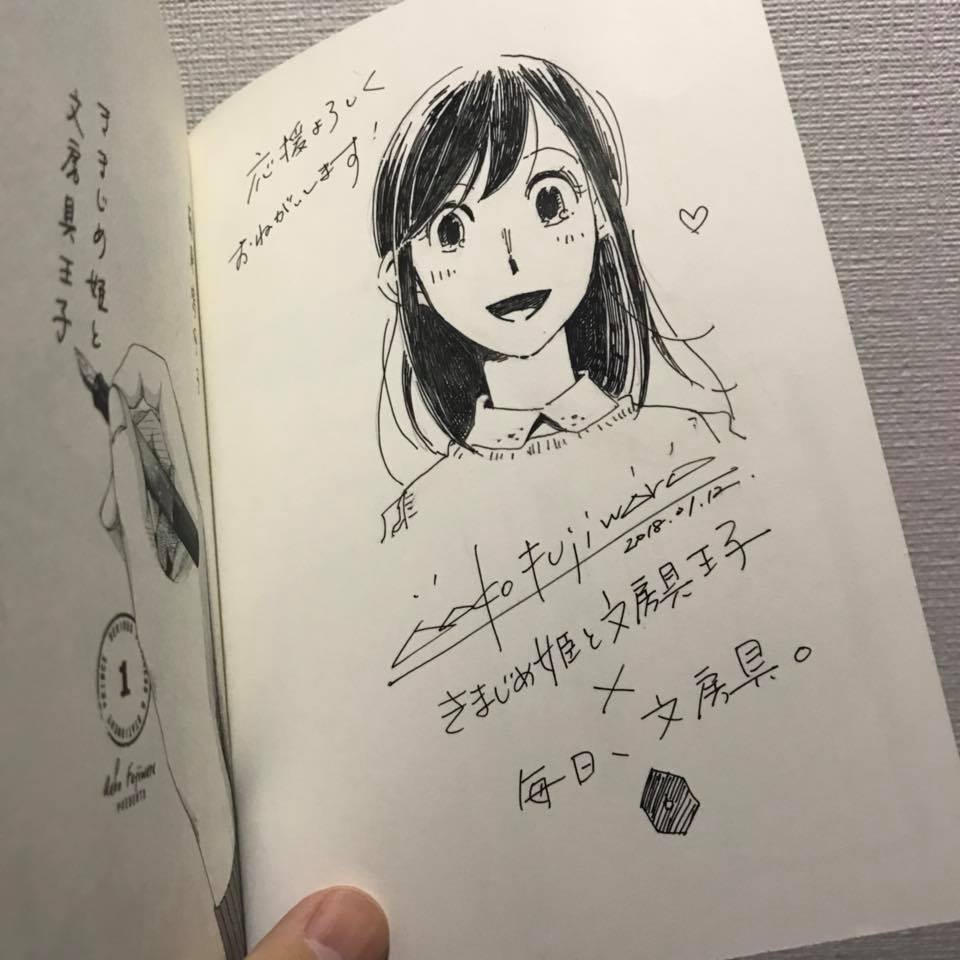 きまじめ姫と
文房具王子
1
PRESENTS
応援よろしく
おねがいします!
Fujiwara
2018.01.12.
きまじめ姫と文房具王子
×
毎日、文房具。